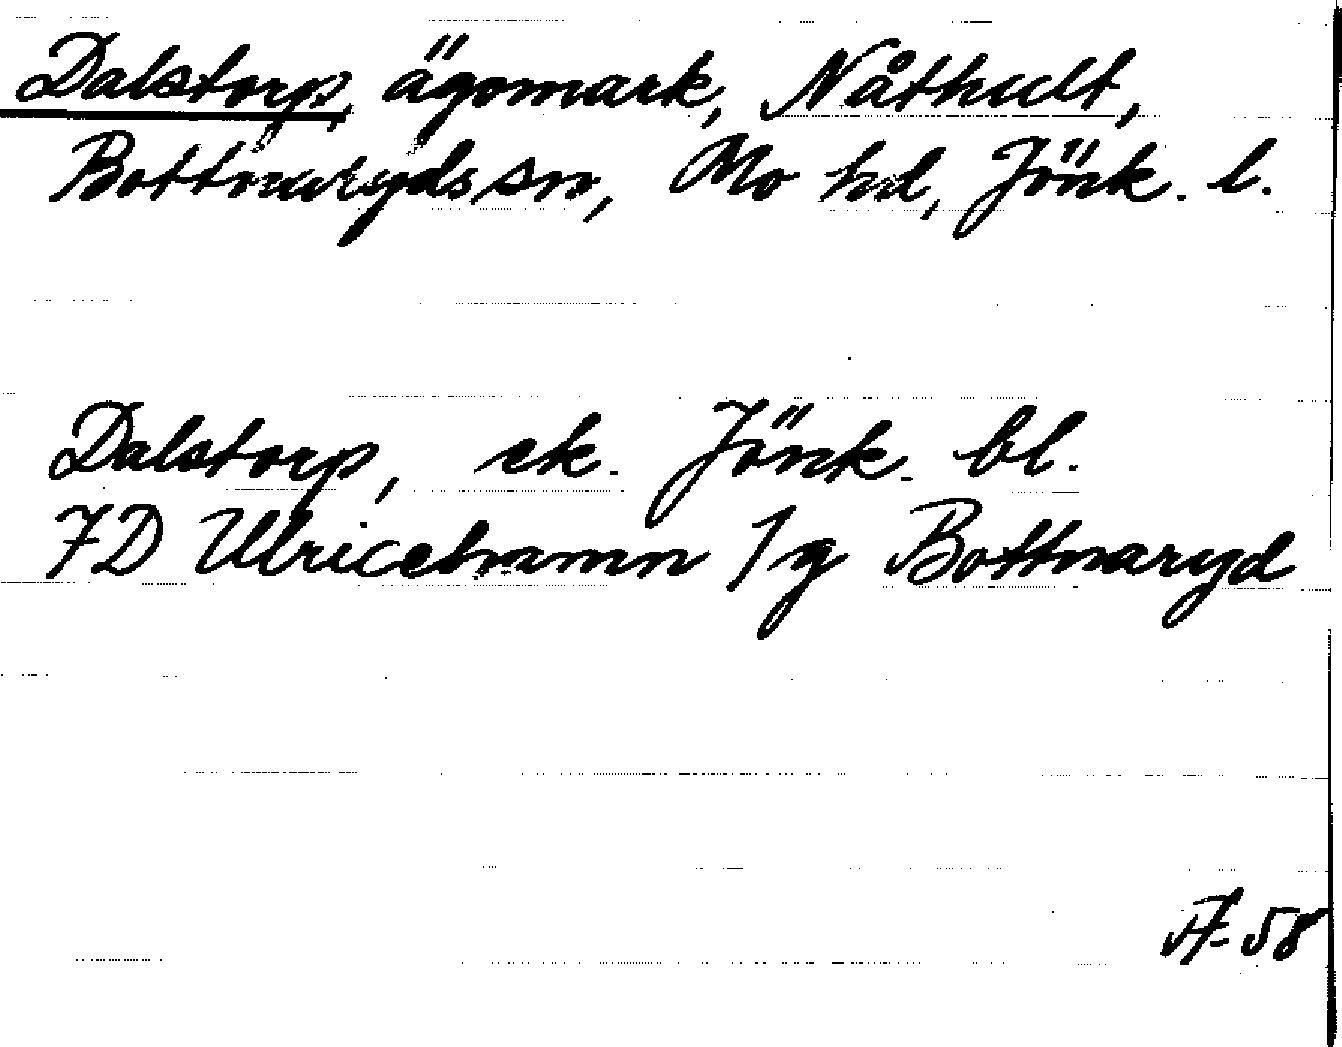 Dalstorp, ägomark, Nåthult,
Bottnaryds sn, Mo hd, Jönk. l.
Dalstorp, ek. Jönk. bl.
7D Ulricehamn 1g Bottnaryd
A-58